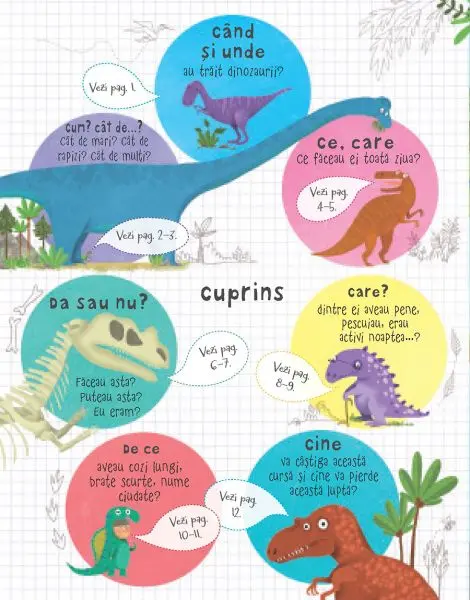 când
și unde
au trăit dinozaurii?
Vezi pag. 1.
cum? cât de...?
Cât de mari? Cât de
rapizi? Cât de mulți?
Vezi pag. 2–3.
ce, care
Ce făceau ei toată ziua?
Vezi pag.
4–5.
cuprins
Da sau nu?
Făceau asta?
Puteau asta?
Eu eram?
Vezi pag.
6–7.
care?
dintre ei aveau pene,
pescuiau, erau
activi noaptea...?
Vezi pag.
8–9.
De ce
aveau cozi lungi,
brațe scurte, nume
ciudate?
Vezi pag.
10–11.
cine
va câștiga această
cursă și cine va pierde
această luptă?
Vezi pag.
12.